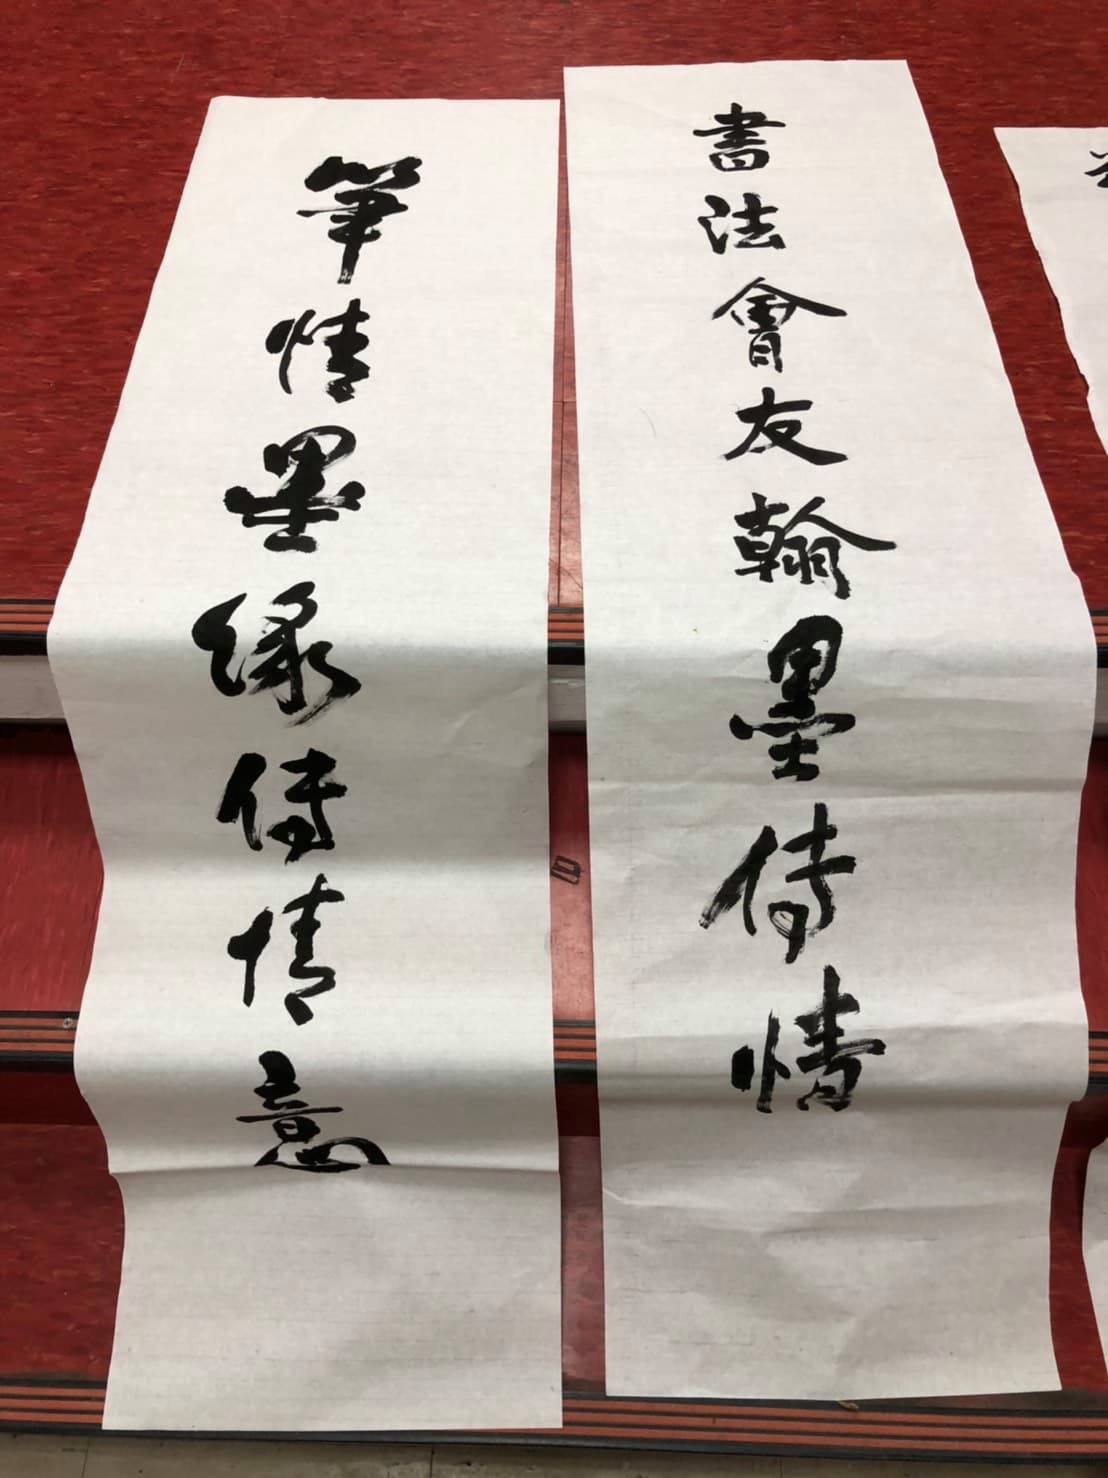 書法會友翰墨傳情
筆情墨緣傳情意